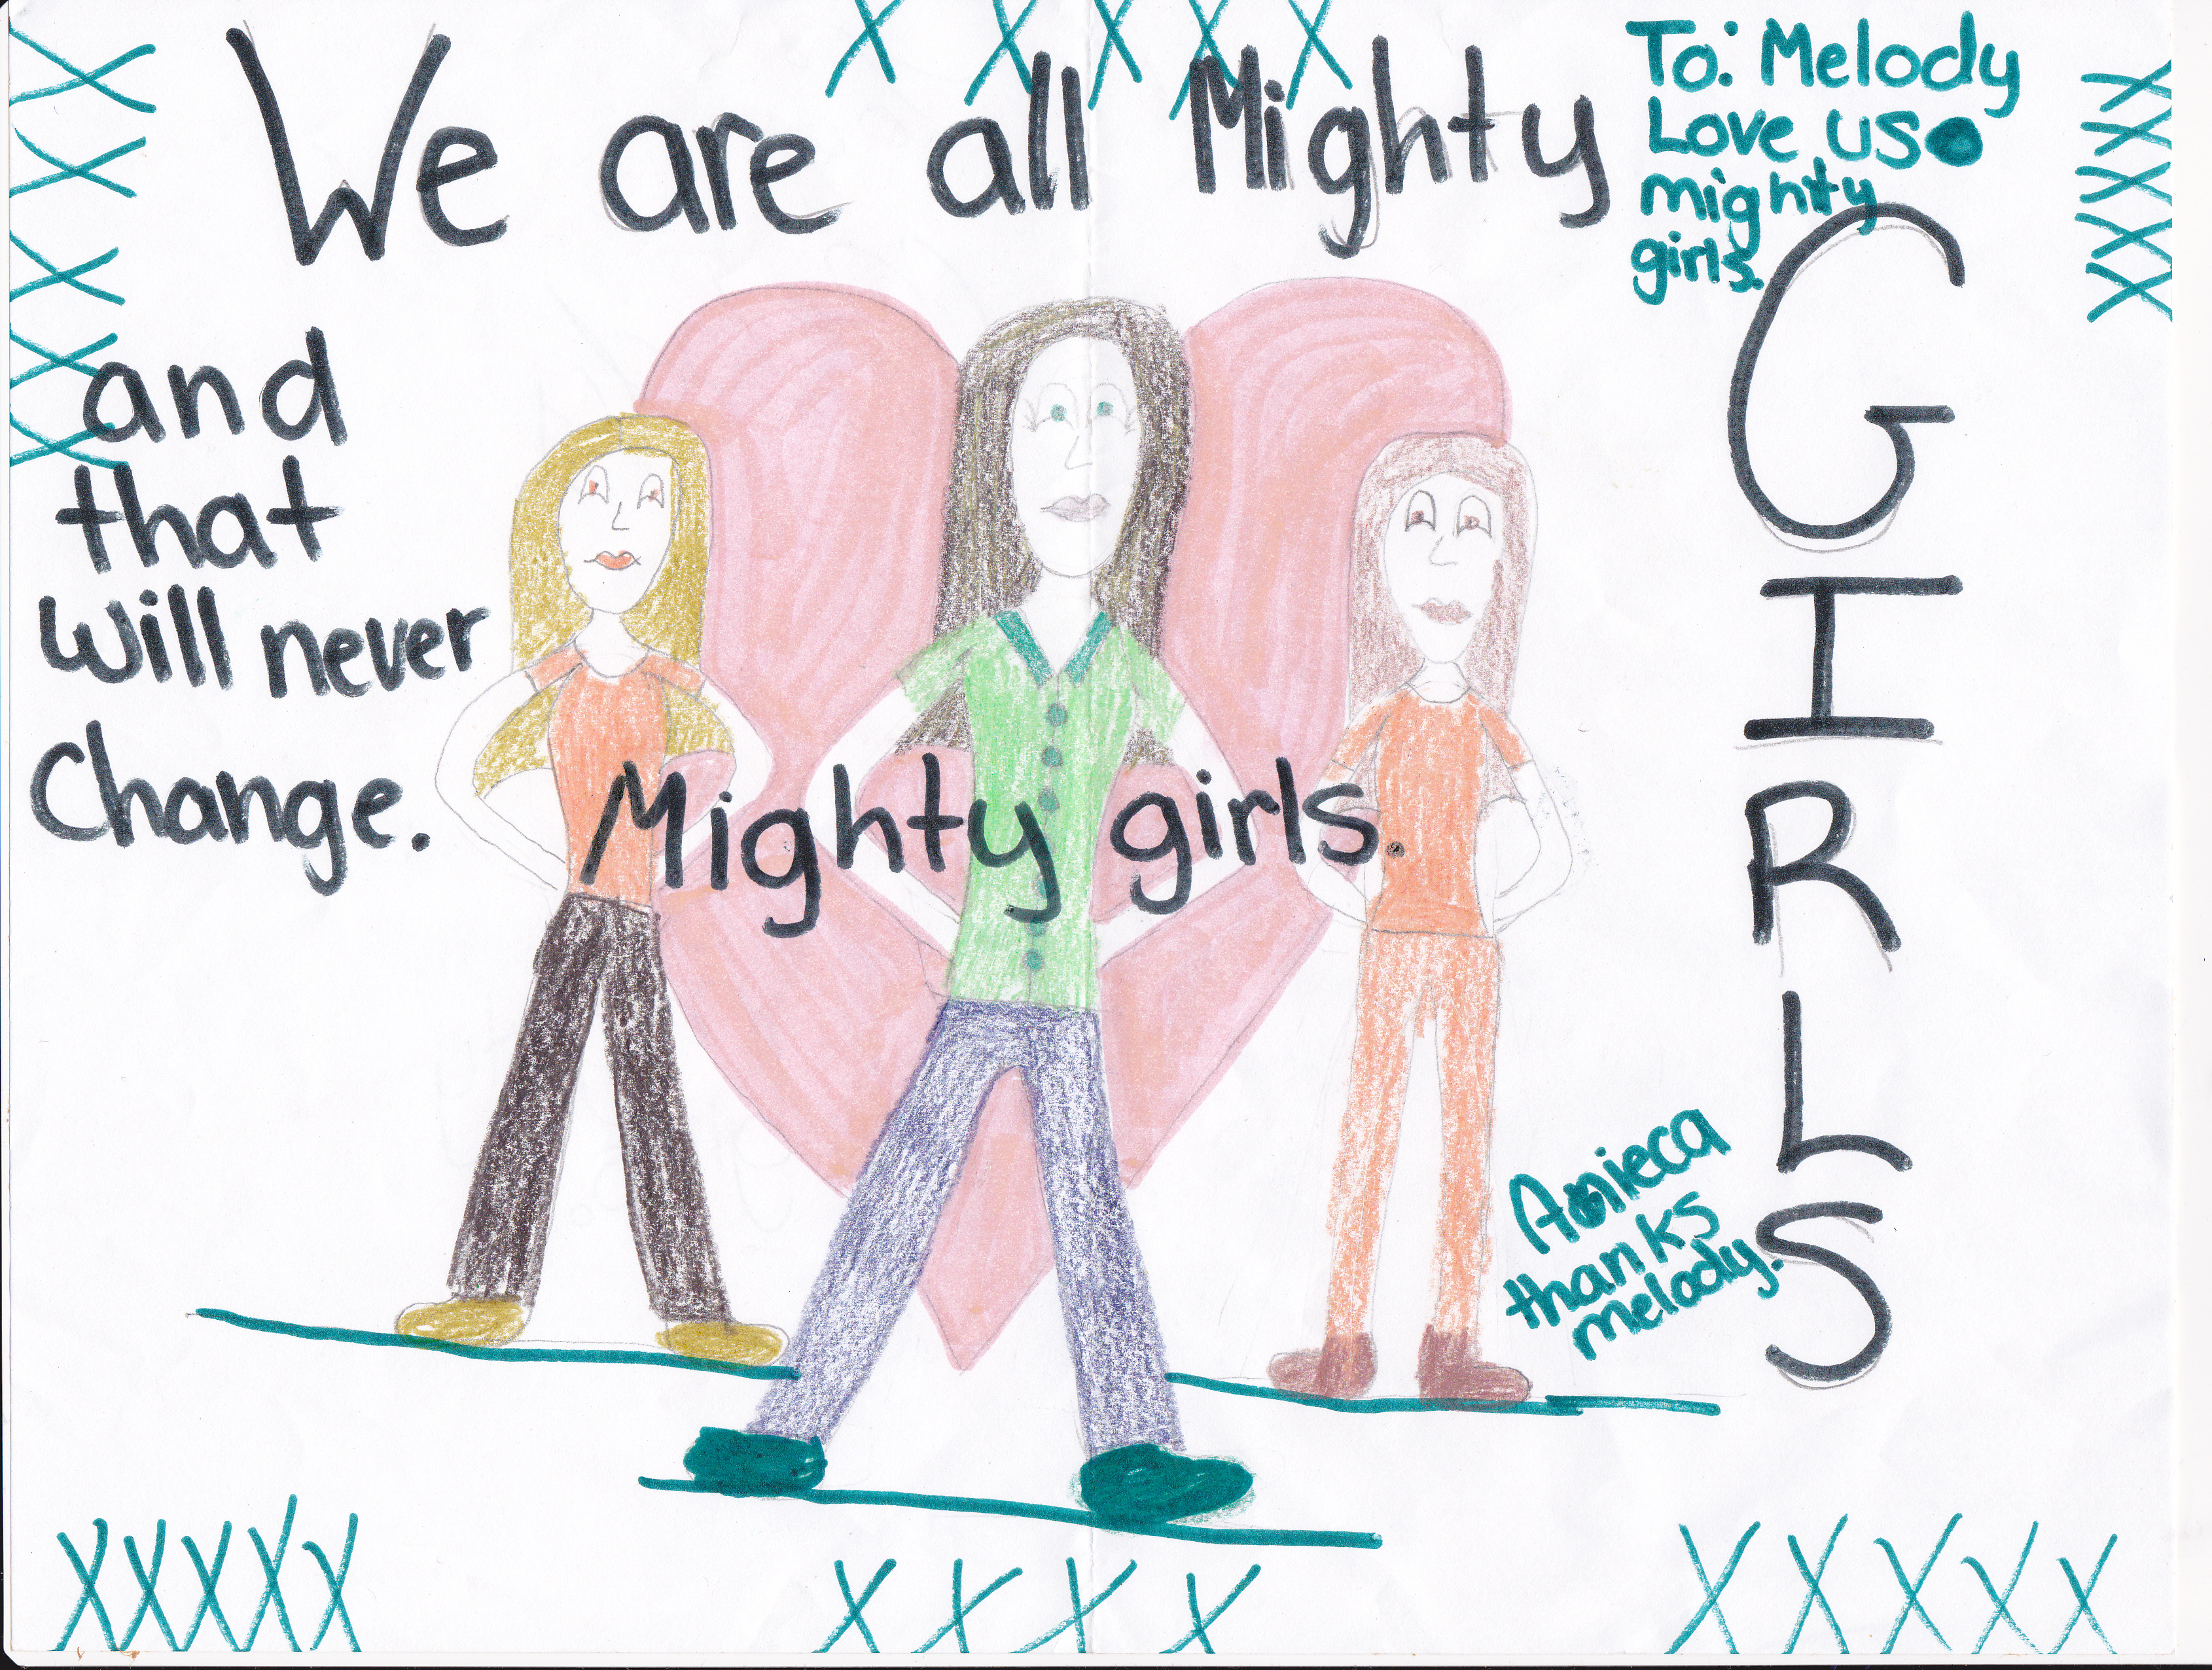 We are all Mighty
GIRLS
and
that
will never
Change.
Mighty girls.
To: Melody
Love us
mighty
girls.
Anieca
thanks
melody.
XXXXX
XXXXX
XXXXX
XXXXX
XXXX
XXXXX